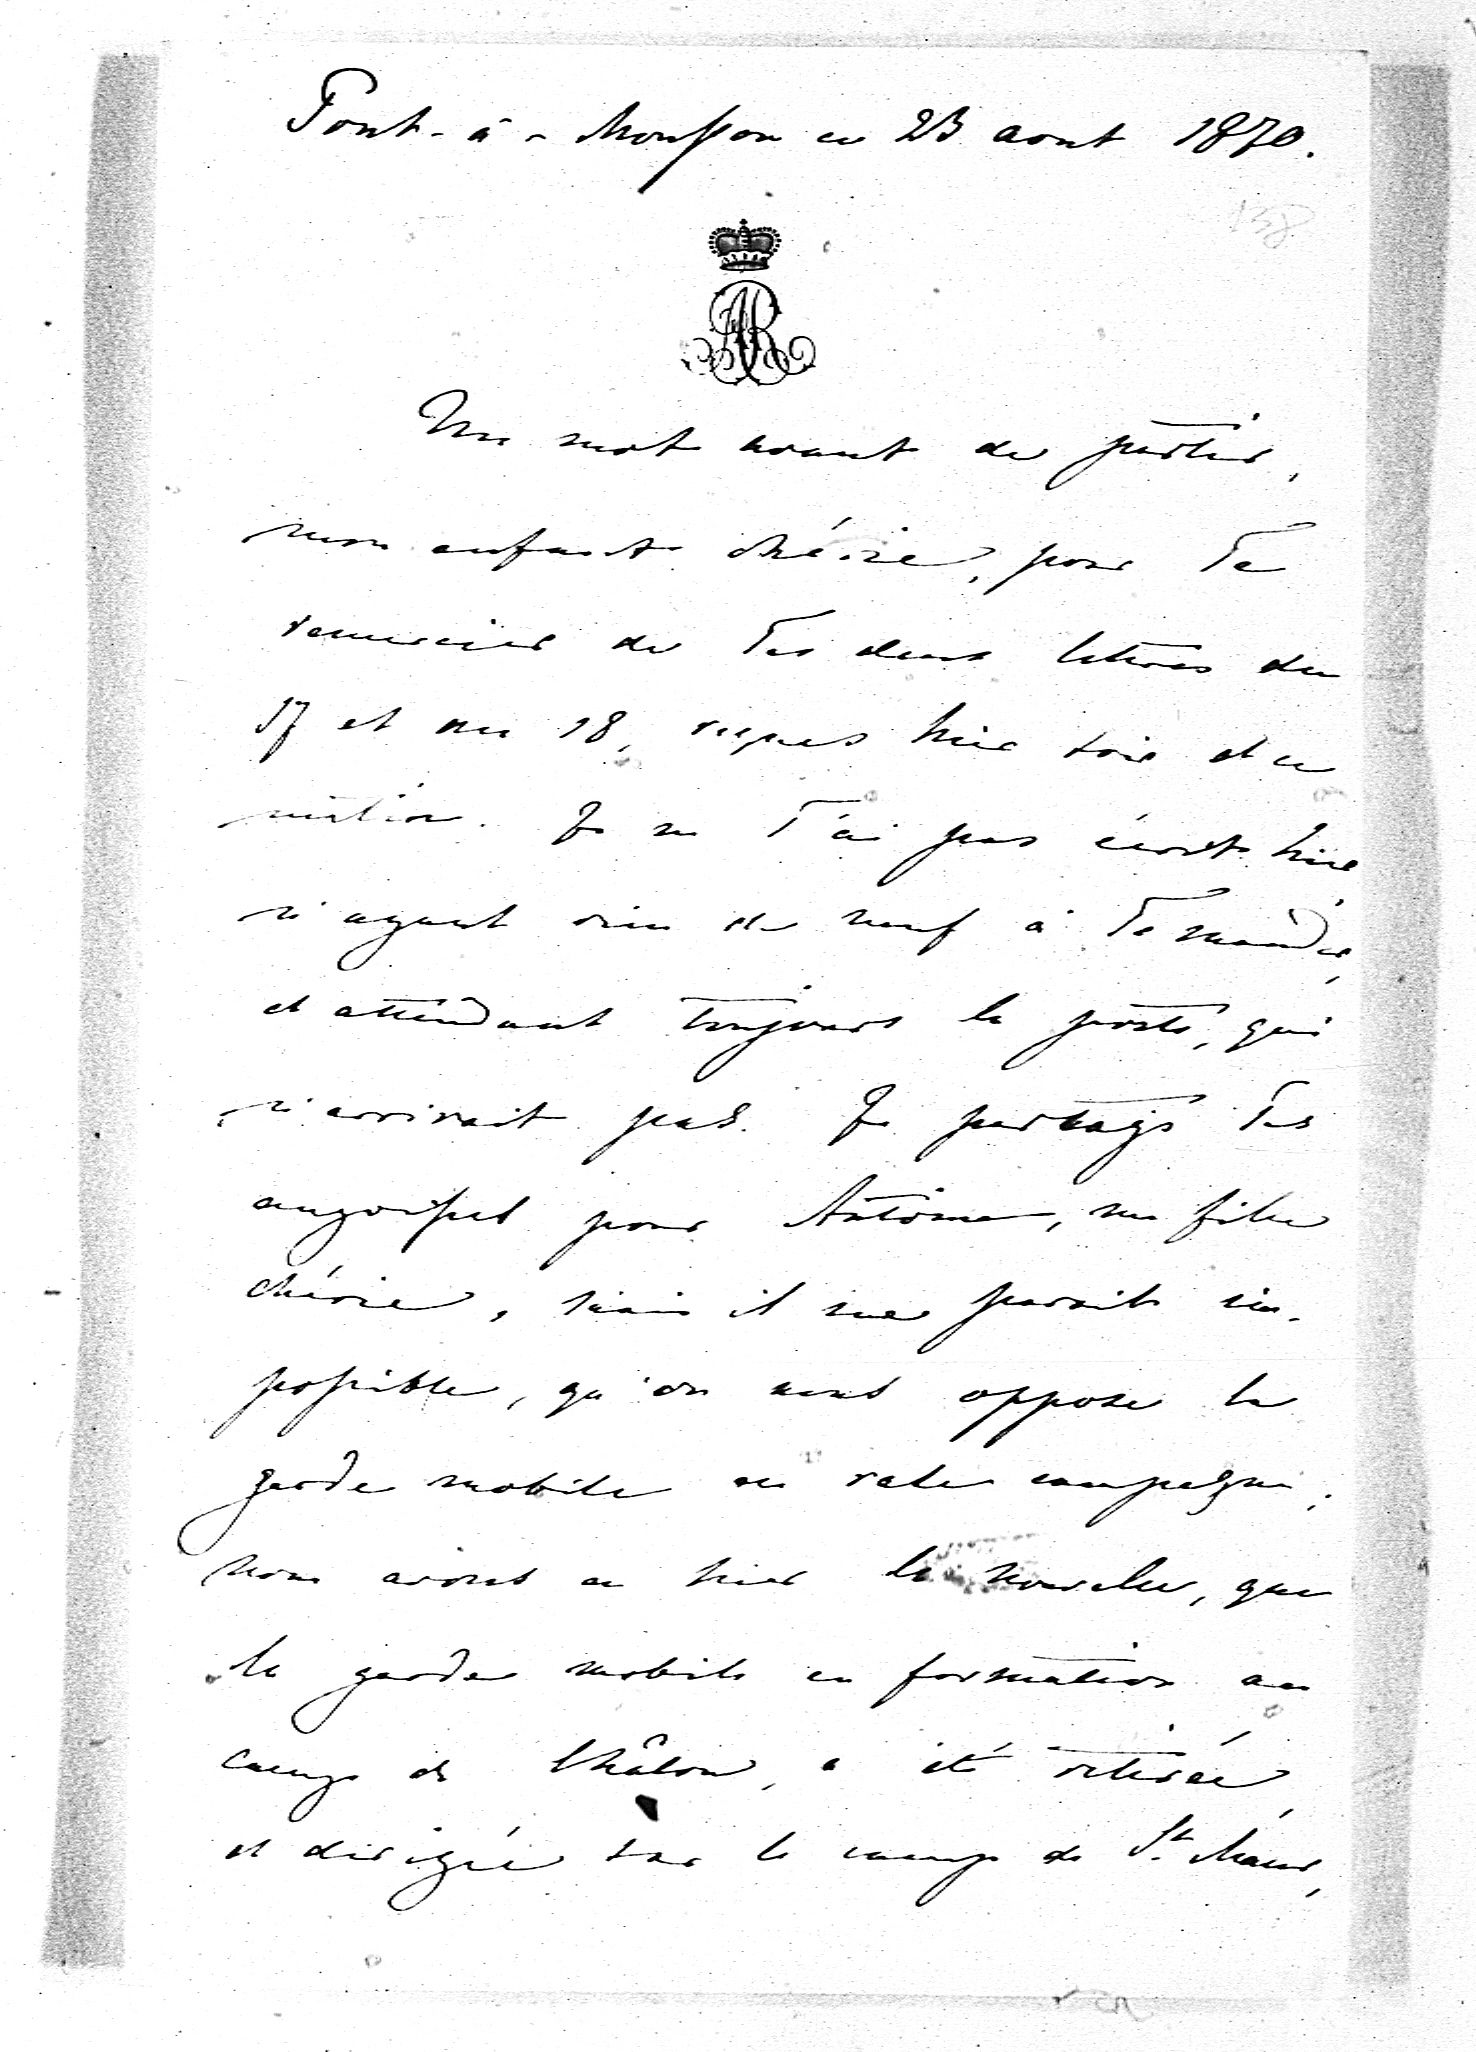 Pont-à-Mousson ce 23 aout 1870.
AR
Un mot avant de partir,
mon enfant chérie, pour Te
remercier de Tes deux lettres du
17 et du 18, reçues hier soir et ce
matin. Je ne T'ai pas écrit hier,
n'ayant rien de neuf à Te mander,
et attendant toujours la poste, qui
n'arrivait pas. Je partage Tes
angoisses pour Antoine, ma fille
chérie, mais il me parait im-
possible, qu'on nous oppose la
garde mobile en rase campagne;
nous avons eu hier la nouvelle, que
la garde mobile en formation au
camp de Châlon, a été retirée,
et dirigée sur le camp de St. Maur,